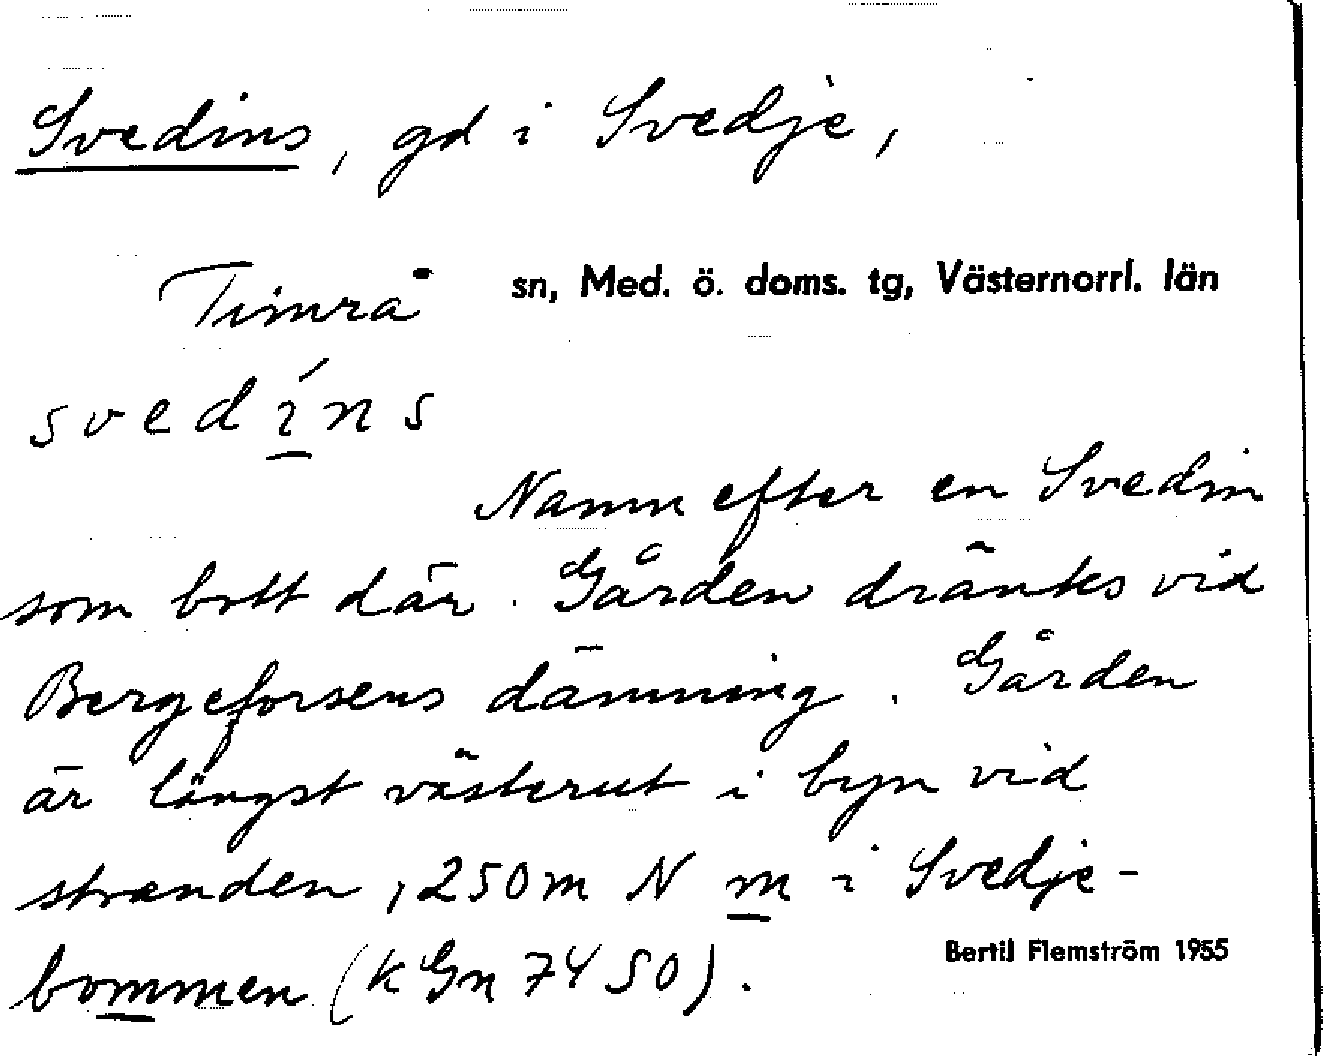 Svedins, gd i Svedje,
Timrå sn, Med. ö. doms. tg, Västernorrl. län
svedíns
Namn efter en Svedin
som bott där. Gården dränks vid
Bergeforsens dämning. Gården
är längst västerut i byn vid
stranden, 250 m N m i Svedje-
bommen (kGn 7450).
Bertil Flemström 1955